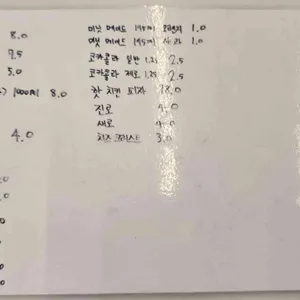 8.0
9.5
5.0
1000ml 8.0
4.0
미닛 메이드 195ml 오렌지 1.0
미닛 메이드 195ml 사과 1.0
코카콜라 일반 1.25 2.5
코카콜라 제로 1.25 2.5
핫 치킨 피자
진로 4.0
새로 4.0
치즈 크러스트 3.0